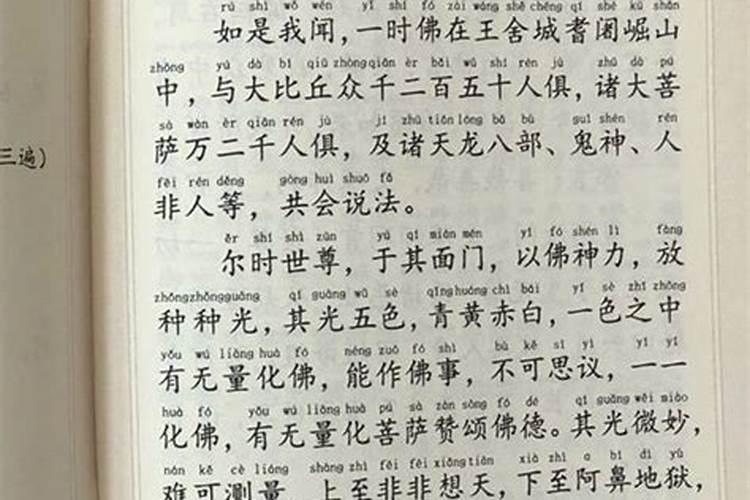 三遍）
rú shì wǒ wén yī shí fó zài wáng shě chéng qí shé kū shān
如是我闻，一时佛在王舍城耆阇崛山
zhōng yú dà bǐ qiū zhòng qiān èr bǎi wǔ shí rén jù zhū dà pú
中，与大比丘众千二百五十人俱，诸大菩
sà wàn èr qiān rén jù jí zhū tiān lóng bā bù guǐ shén rén
萨万二千人俱，及诸天龙八部、鬼神、人
fēi rén děng gòng huì shuō fǎ
非人等，共会说法。
ěr shí shì zūn yú qí miàn mén yǐ fó shén lì fàng
尔时世尊，于其面门，以佛神力，放
zhǒng zhǒng guāng qí guāng wǔ sè qīng huáng chì bái yī sè zhī zhōng
种种光，其光五色，青黄赤白，一色之中
yǒu wú liàng huà fó néng zuò fó shì bù kě sī yì yī yī
有无量化佛，能作佛事，不可思议，一一
huà fó yǒu wú liàng huà pú sà zàn sòng fó dé qí guāng wēi miào
化佛，有无量化菩萨赞颂佛德。其光微妙，
nán kě cè liáng shàng zhì fēi fēi xiǎng tiān xià zhì ā bí dì yù
难可测量，上至非非想天，下至阿鼻地狱，